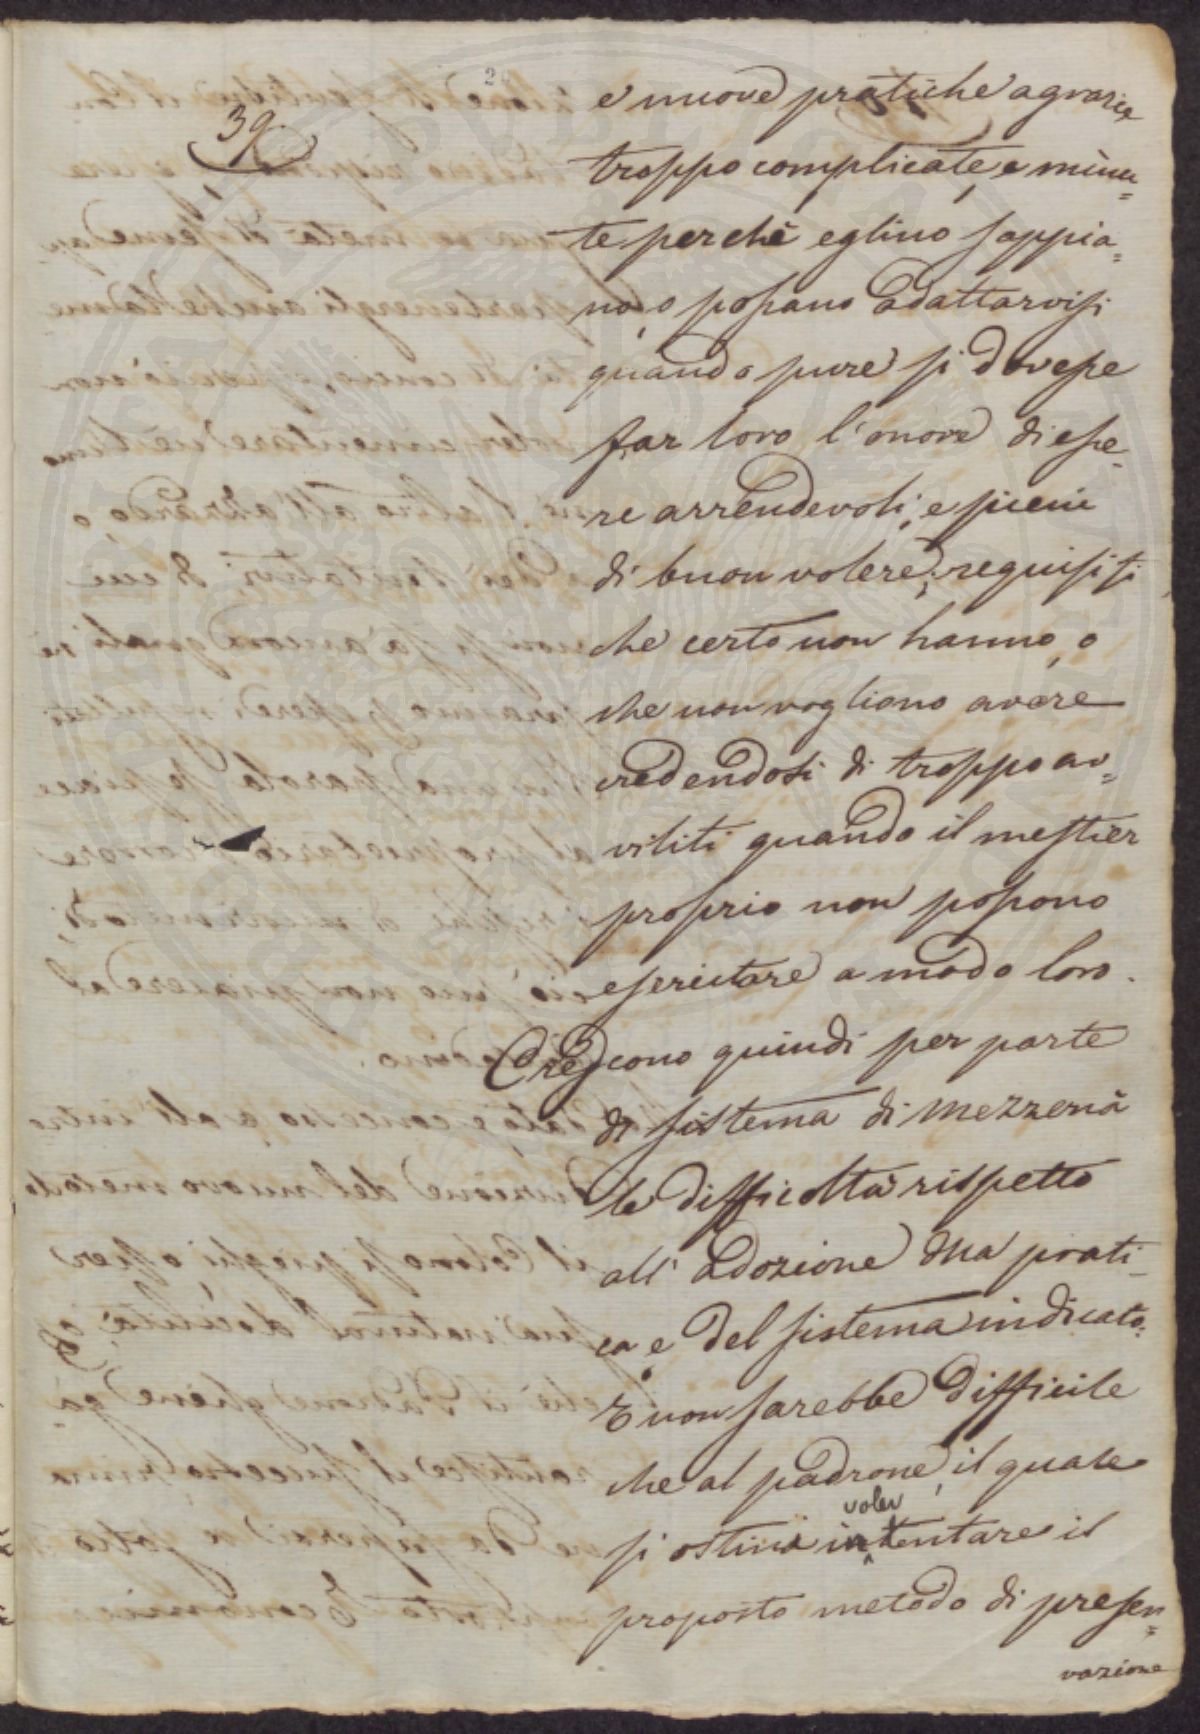 39.
e nuove pratiche agrarie
troppo complicate, e minu=
te perchè eglino sappia=
no, o possano adattarvisi
quando pure si dovesse
far loro l'onore di esse=
re arrendevoli, e pieni
di buon volere; requisiti
che certo non hanno, o
che non vogliono avere
credendosi di troppo av=
viliti quando il mestier
proprio non possono
esercitare a modo loro.
Crescono quindi per parte
di sistema di mezzeria
le difficoltà rispetto
all'adozione ma prati=
ca, e del sistema indicato.
E non sarebbe difficile
che al padrone, il quale
voler
si ostini in tentare il
proposto metodo di preser=
vazione